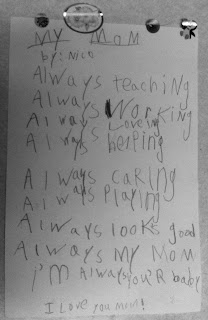 My Mom
by: Nico
Always teaching
Always Working
Always Loveing
Always helping
Always caring
Always Playing
Always looks good
Always My Mom
I'm Always youR baby
I Love you mom!